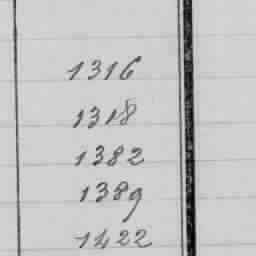 1316
1318
1382
1389
1422